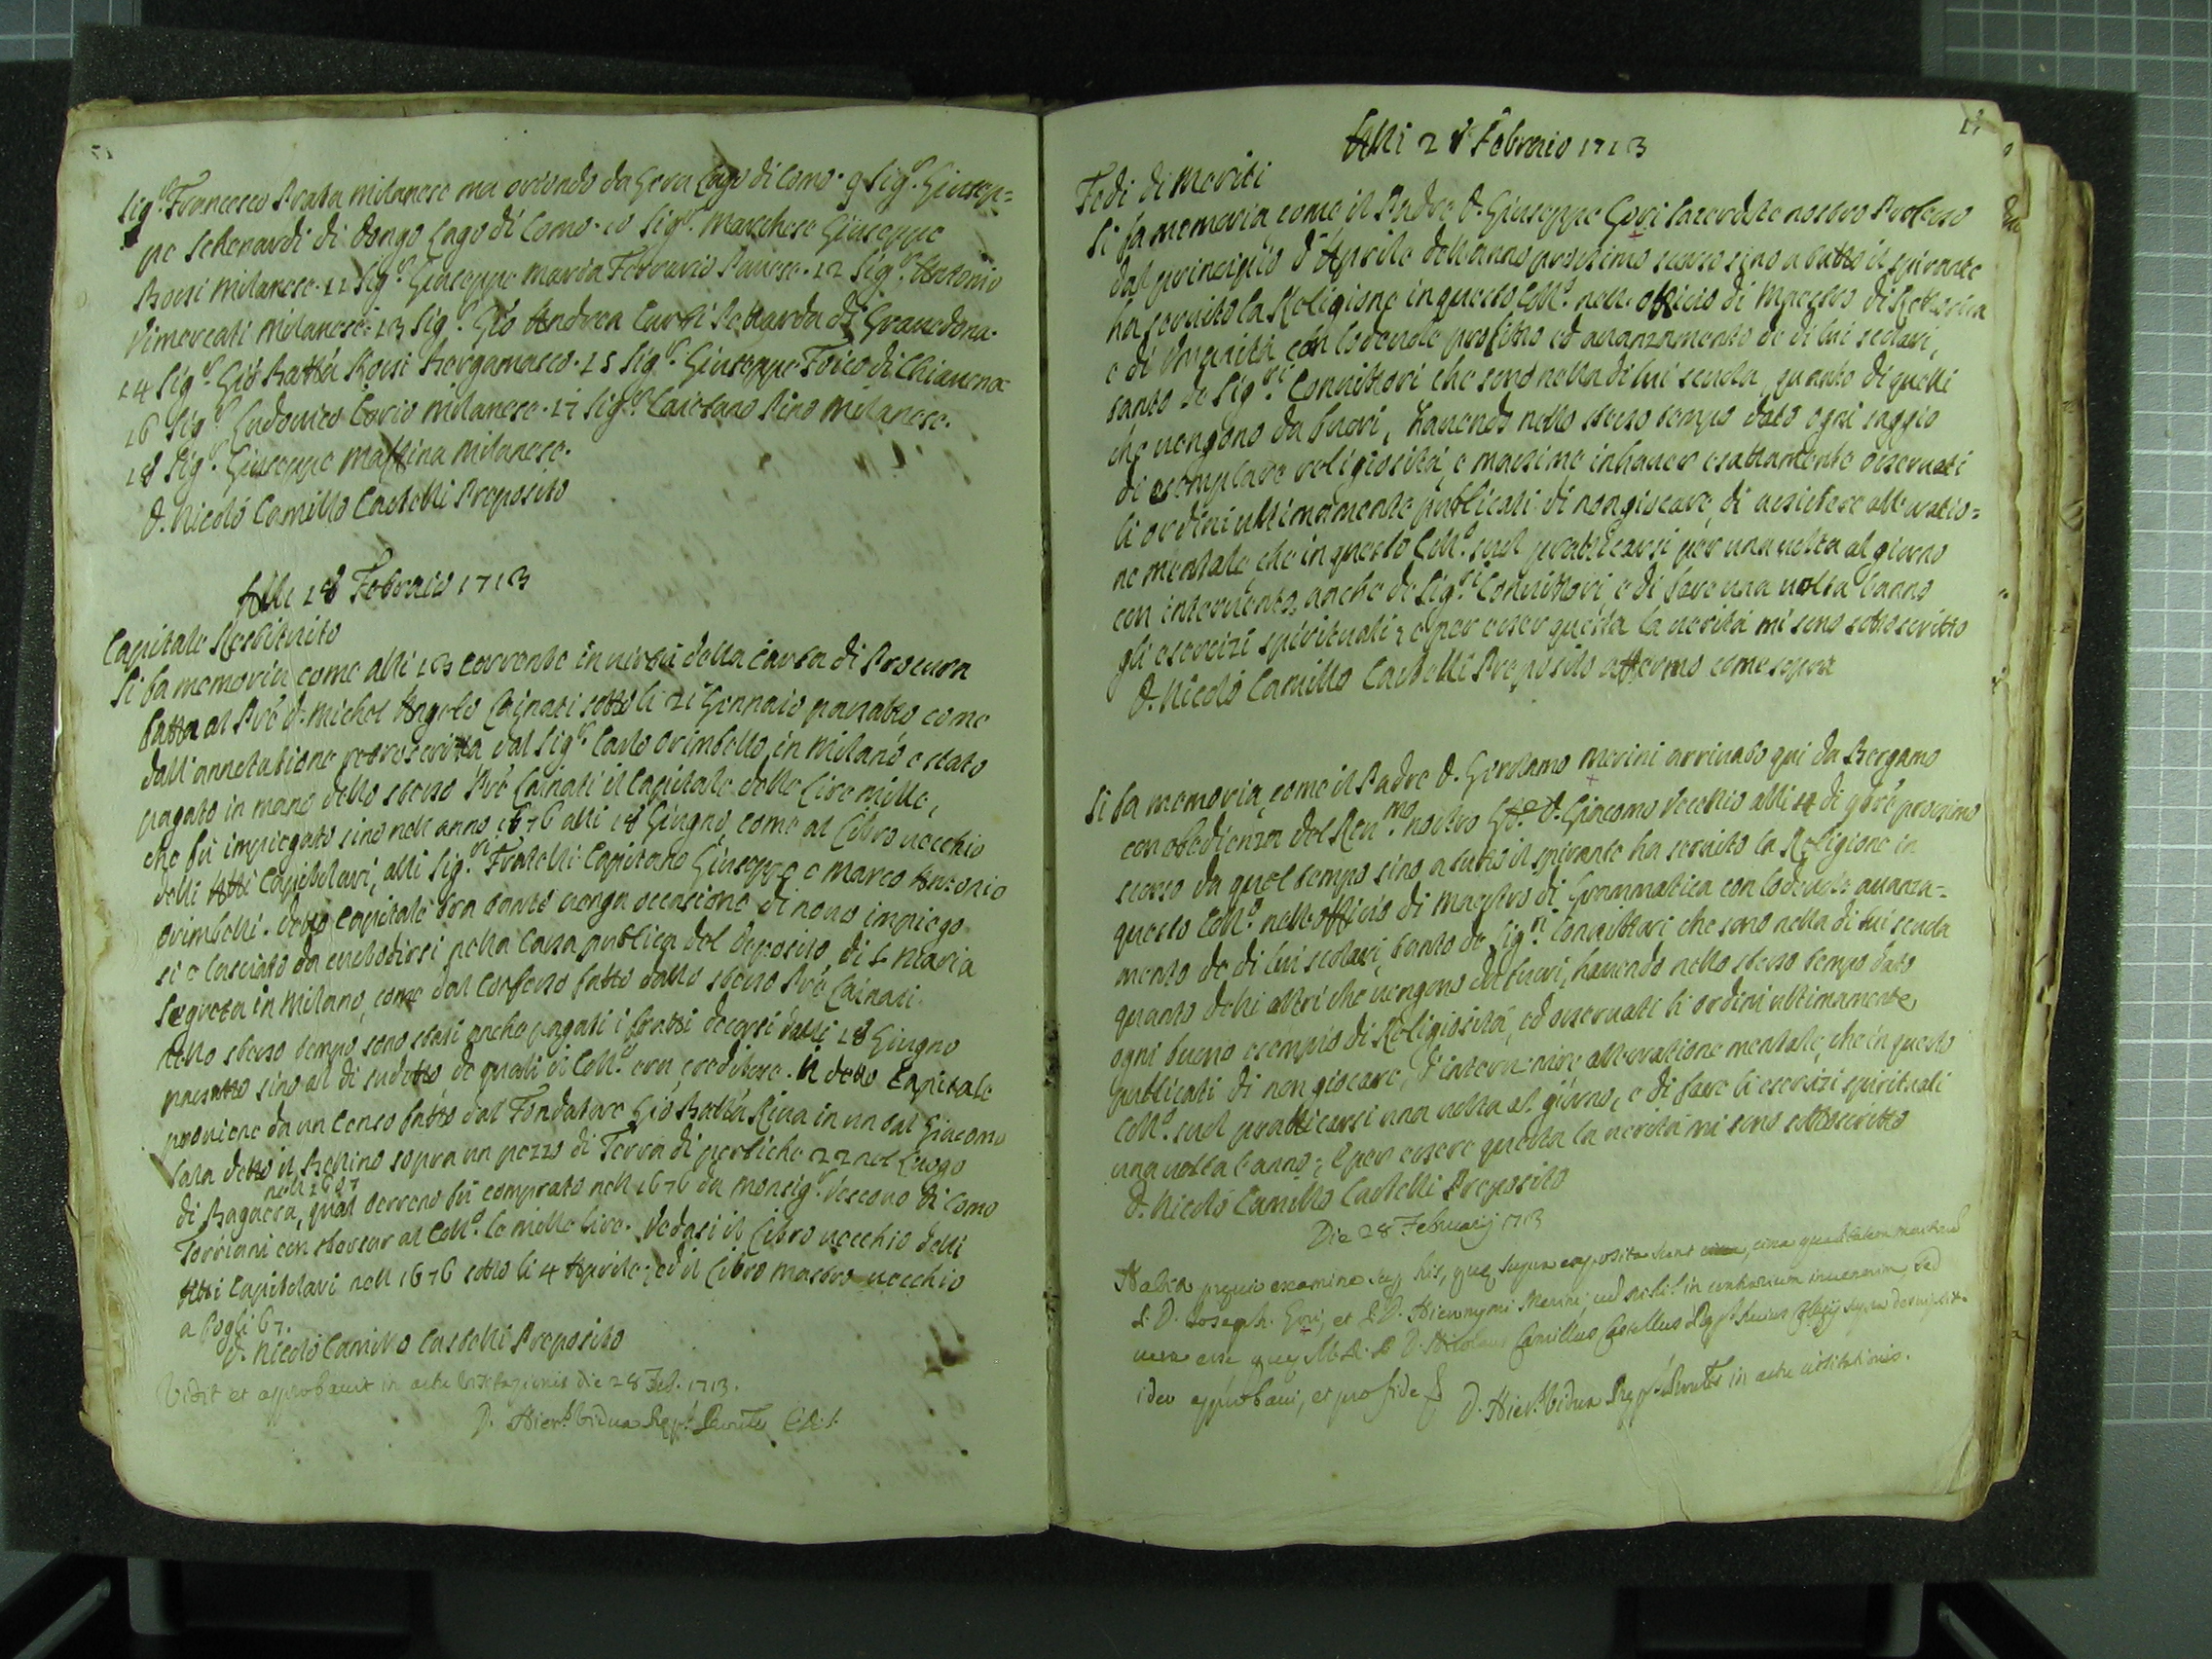 Sig.r Francesco Prata Milanese ma oriondo da Gera Lago di Como. 9 Sig.r Giusep=
pe Schenardi di Dongo Lago di Como. 10 Sig.r Marchese Giuseppe
Rossi Milanese. 11 Sig.r Giuseppe Maria Ferrario Pavese. 12 Sig.r Antonio
Vimercati Milanese. 13 Sig.r Gio Andrea Curti Pettarda di Gravedona.
14 Sig.r Gio Batta Rossi Bergamasco. 15 Sig.r Giuseppe Foico di Chiavena
16 Sig.r Ludovico Corio Milanese. 17 Sig.r Caietano Pino Milanese.
18 Sig.r Giuseppe Massina Milanese.
D. Nicolò Camillo Castelli Preposito
Alli 18 Febraio 1713
Capitale Restituito
Si fa memoria come alli 13 corrente in virtù della Carta di Procura
fatta al Prē D. Michel Angelo Cainati sotto li 21 Gennaio passato come
dall'annotatione retroscritta dal Sig.r Carlo Orimbello in Milano e stato
pagato in mano dello stesso Prē Cainati il Capitale delle Lire mille,
che fù impiegato sino nell'anno 1676 alli 18 Giugno, come al Libro vecchio
delli Atti Capitolari, alli Sig.ri Fratelli Capitano Giuseppe e Marco Antonio
Orimbelli. Detto Capitale fra tanto venga occasione di novo impiego
si e lasciato da custodirsi nella Cassa publica del Deposito di S. Maria
Segreta in Milano, come dal Confesso fatto dallo stesso Prē Cainati.
Nello stesso tempo sono stati anche pagati i frutti decorsi dalli 18 Giugno
passato sino al dì sudetto de quali il Coll.o era creditore. Il detto Capitale
proviene da un Censo fatto dal Fondatore Gio Batta Riva in un dal Giacomo
Sala detto il Bettino sopra un pezzo di Terra di pertiche 22 nel Luogo
nell 1607
di Ragaera, qual terreno fù comprato nell 1676 da Monsig.r Vescovo di Como
Torriani con sborsar al Coll.o le mille Lire. Vedasi il Libro vecchio delli
Atti Capitolari nell 1676 sotto li 4 Aprile; ed il Libro mastro vecchio
a fogli 67.
D. Nicolò Camillo Castelli Preposito
Vidit et approbavit in actu Visitationis die 28 Feb. 1713.
D. Hier. Vidua Prep.
Alli 28 Febraio 1713
Fedi di Meriti
Si fa memoria come il Padre D. Giuseppe Gori Sacerdote nostro Professo
dal principio d'Aprile dell'anno prossimo scorso sino a tutto il spirante
hà servito la Religione in questo Coll.o nell'officio di Maestro di Rettorica
e di Umanità con lodevole profitto ed avanzamento de di lui scolari,
tanto de Sig.ri Convittori che sono nella di lui scuola, quanto di quelli
che vengono da fuori, havendo nello stesso tempo dato ogni saggio
di esemplare religiosità, e massime in haver esattamente osservati
li ordini ultimamente publicati di non giocare, di assistere all'oratio=
ne mentale, che in questo Coll.o suol pratticarsi per una volta al giorno
con intervento anche de Sig.ri Convittori e di fare una volta l'anno
gli esercizi spirituali, e per esser questa la verità mi sono sottoscritto
D. Nicolò Camillo Castelli Preposito affermo come sopra
Si fa memoria come il Padre D. Girolamo Merini arrivato qui da Bergamo
con obedienza del Rev.mo nostro D. Giacomo Vecchio alli 14 di 9bre prossimo
scorso da quel tempo sino a tutto il spirante ha servito la Religione in
questo Coll.o nell'officio di Maestro di Grammatica con lodevole avanza=
mento de di lui scolari, tanto de Sig.ri Convittori che sono nella di lui scuola
quanto delli altri che vengono da fuori, havendo nello stesso tempo dato
ogni buono esempio di Religiosità, ed osservati li ordini ultimamente
publicati di non giocare, d'intervenire all'oratione mentale, che in questo
Coll.o suol pratticarsi una volta al giorno, e di fare li esercizi spirituali
una volta l'anno; e per essere questa la verità mi sono sottoscritto
D. Nicolò Camillo Castelli Preposito
Die 28 Februarij 1713
Habito previo examine sup. his, que supra exposita sunt circa qualitatem
P. D. Joseph Gorij et P. D. Hieronymi Merini, nihil in contrarium invenerim, sed
vera esse que M.R.P. D. Nicolaus Camillus Castellus Prep. huius Collegij supra descripsit
ideo approbavi, et pro fide D. Hier. Vidua Prep. in actu visitationis.